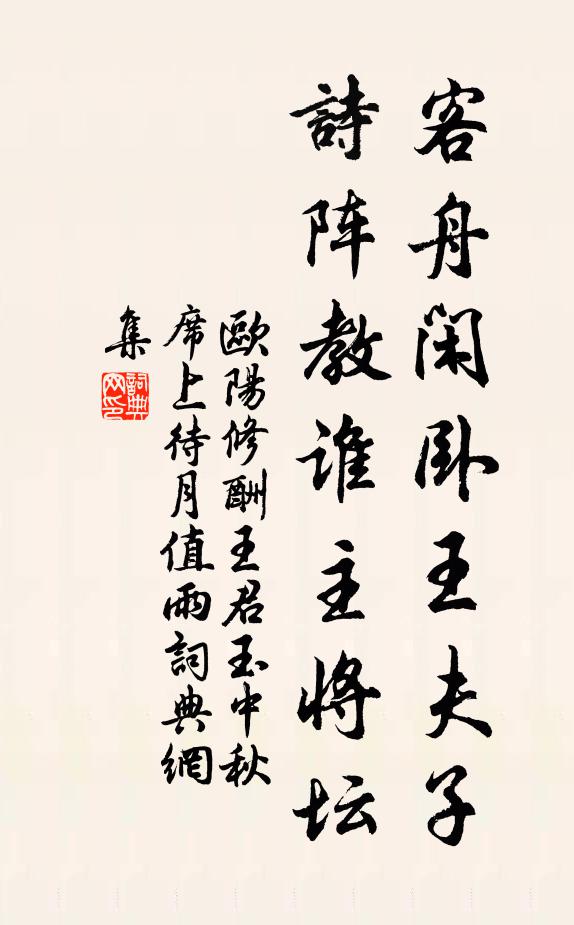 客舟闲卧王夫子
詩阵教谁主将坛
歐陽修酬王君玉中秋
席上待月值雨詞典網
集
詞典
网印